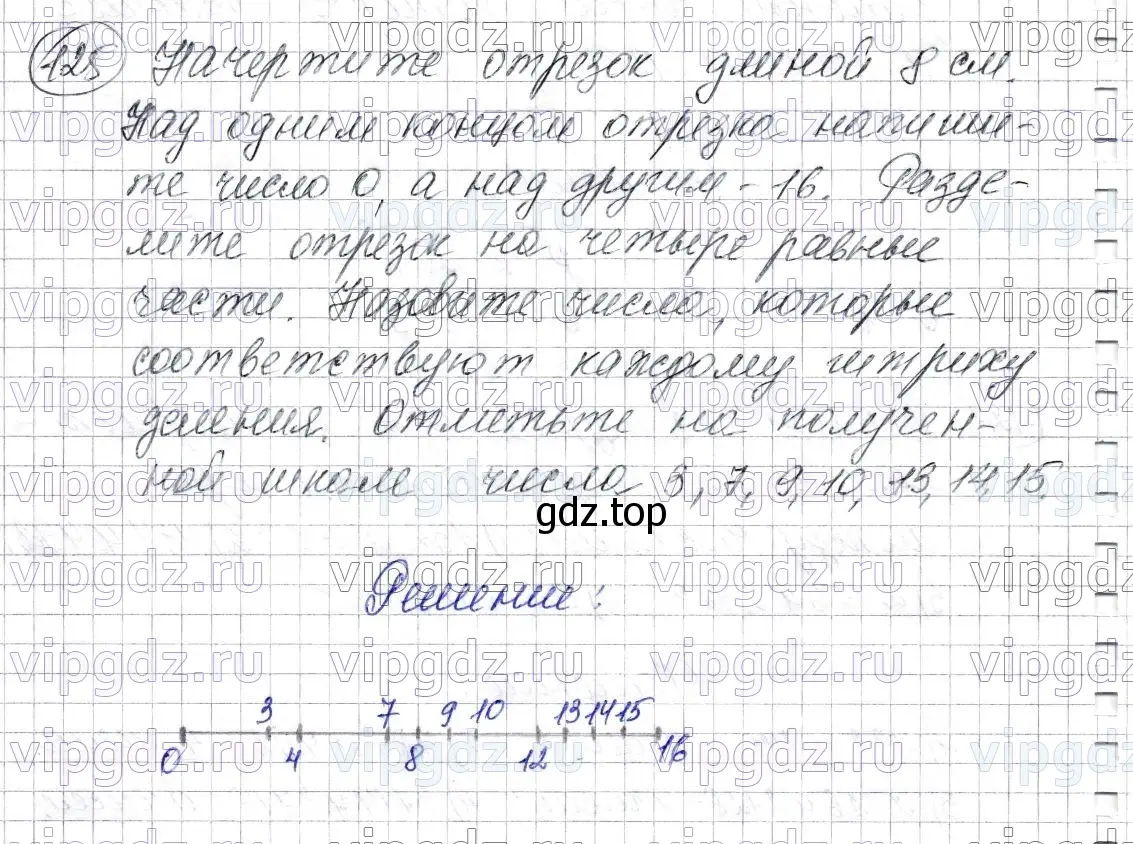 125 Начертите отрезок длиной 8 см.
Над одним концом отрезка напиши-
те число 0, а над другим - 16. Разде-
лите отрезок на четыре равные
части. Назовите числа, которые
соответствуют каждому штриху
деления. Отметьте на получен-
ной шкале числа 3, 7, 9, 10, 13, 14, 15.
gdz.top
Решение:
3 7 9 10 13 14 15
0 4 8 12 16
vipgdz.ru